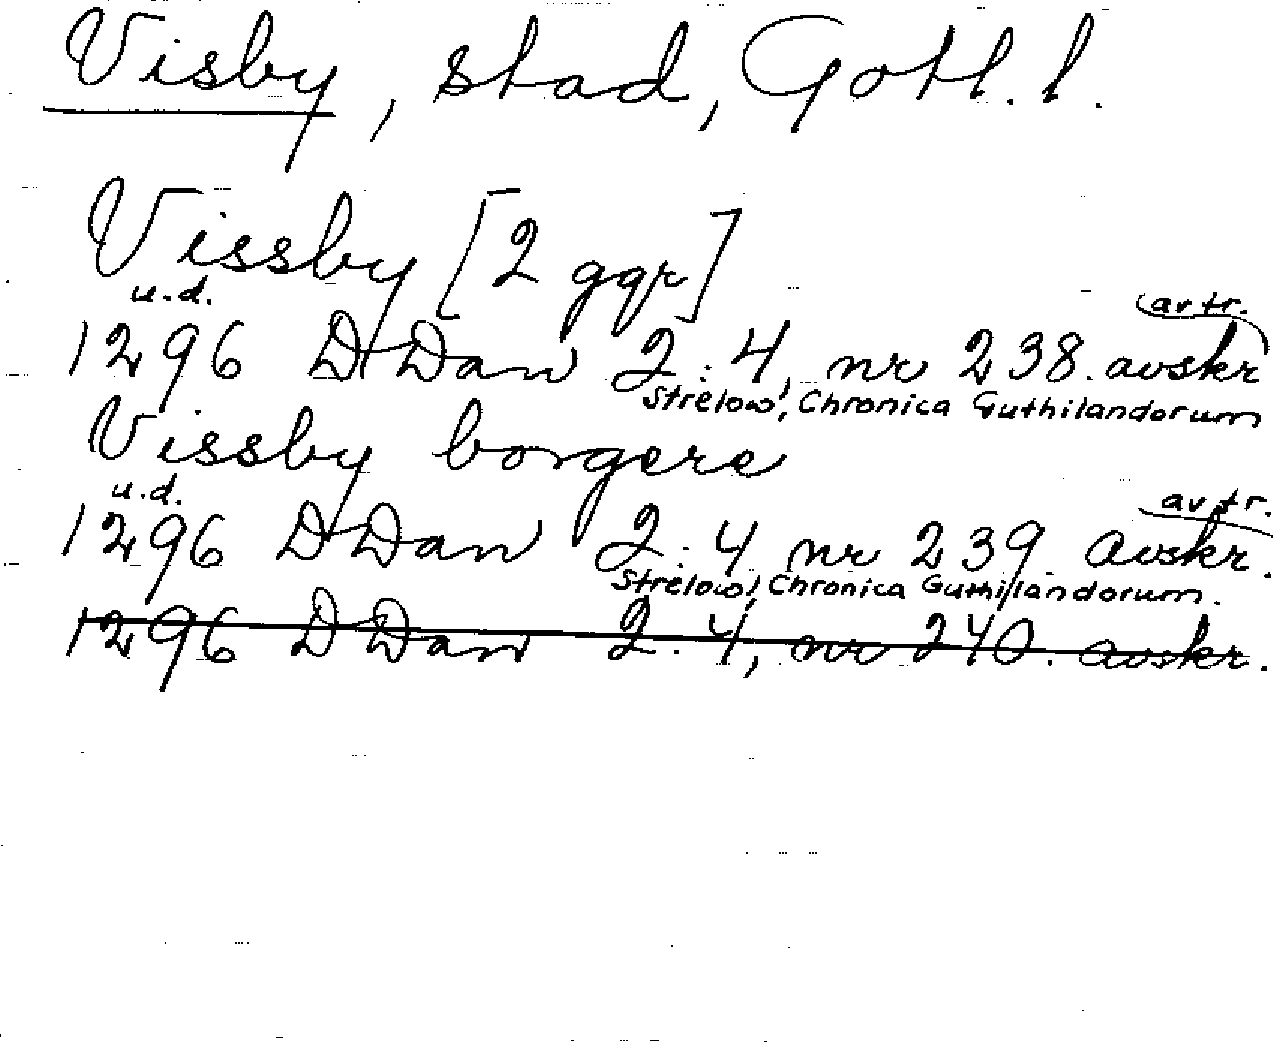 Visby, stad, Gotl. l.
Vissby [2 ggr]
u.d.
avtr.
1296 DDan 2:4, nr 238. avskr
Strelow, Chronica Guthilandorum
Vissby borgere
u.d.
avtr.
1296 DDan 2:4 nr 239. avskr.
Strelow, Chronica Guthilandorum.
1296 DDan 2.4, nr 240. avskr.